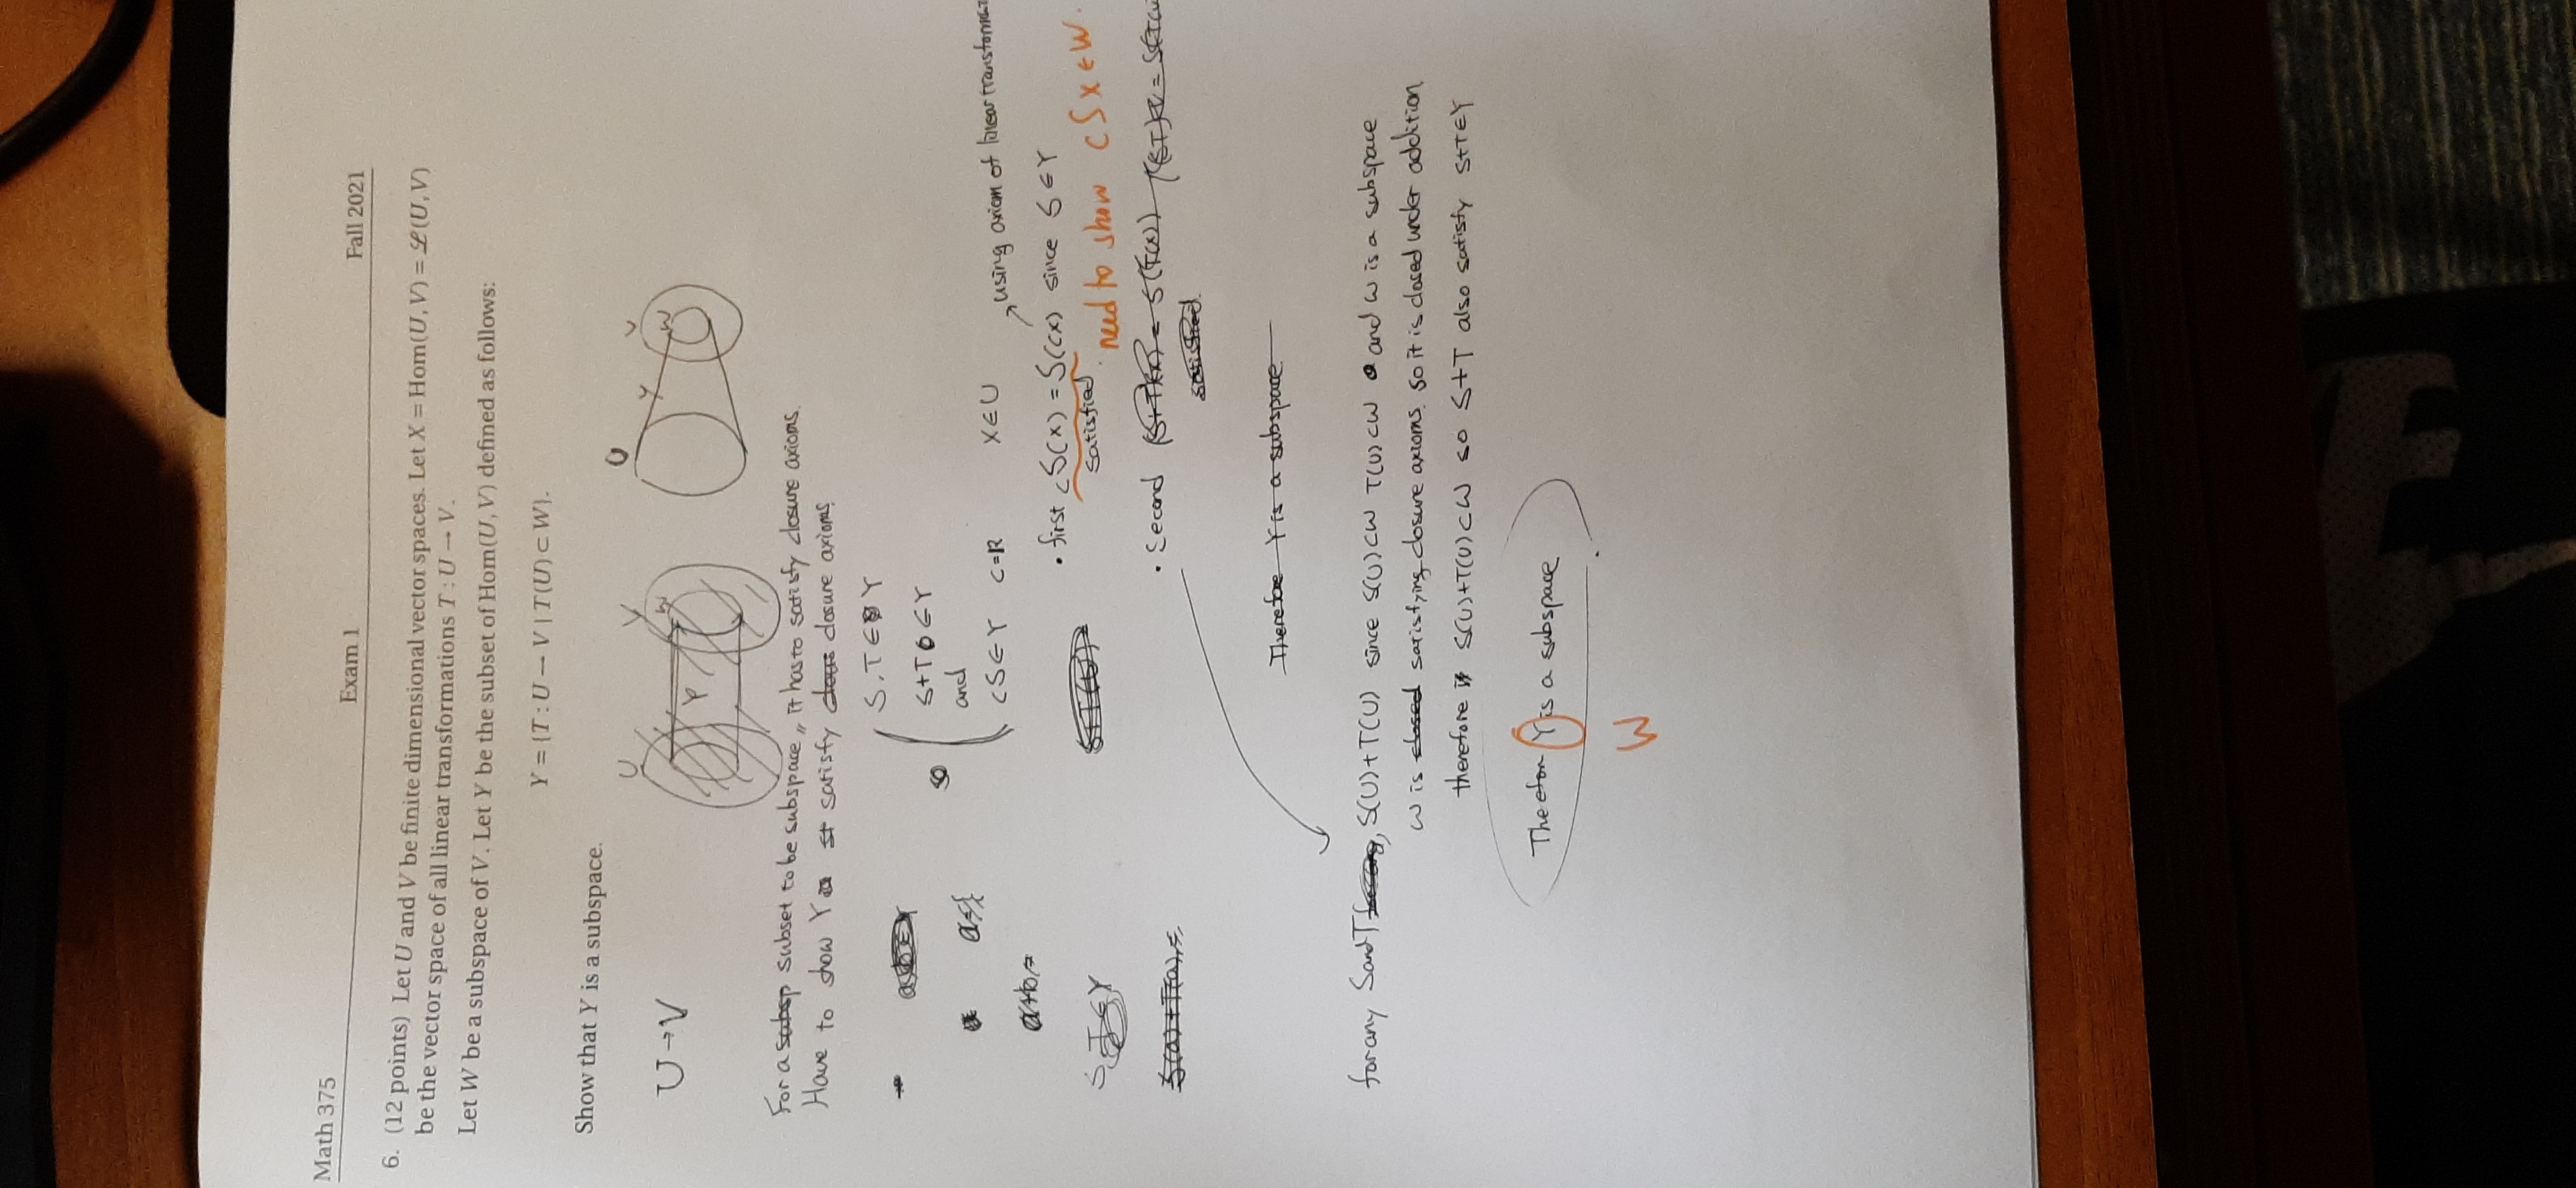 Math 375
Exam 1
Fall 2021
6. (12 points) Let U and V be finite dimensional vector spaces. Let X = Hom(U, V) = ℒ(U, V)
be the vector space of all linear transformations T : U → V.
Let W be a subspace of V. Let Y be the subset of Hom(U, V) defined as follows:
Y = {T : U → V | T(U) ⊂ W}.
Show that Y is a subspace.
U → V
U
V
W
Y
U
Y
V
W
For a subsp subset to be subspace, it has to satisfy closure axioms.
Have to show Y satisfy closure axioms.
S, T ∈ Y
so
S+T ∈ Y
and
cS ∈ Y c=R
X ∈ U
using axiom of linear transformat
• first cS(x) = S(cx) since S ∈ Y
satisfied.
need to show cSx ∈ W.
S, T ∈ Y
S+T(U)
S(a)+T(a)
• Second
satisfied.
Therefore Y is a subspace.
for any S and T, S(U)+T(U) since S(U)⊂W T(U)⊂W and W is a subspace
W is closed satisfying closure axioms. so it is closed under addition,
therefore S(U)+T(U)⊂W so S+T also satisfy S+T∈Y
Y is a subspace
W